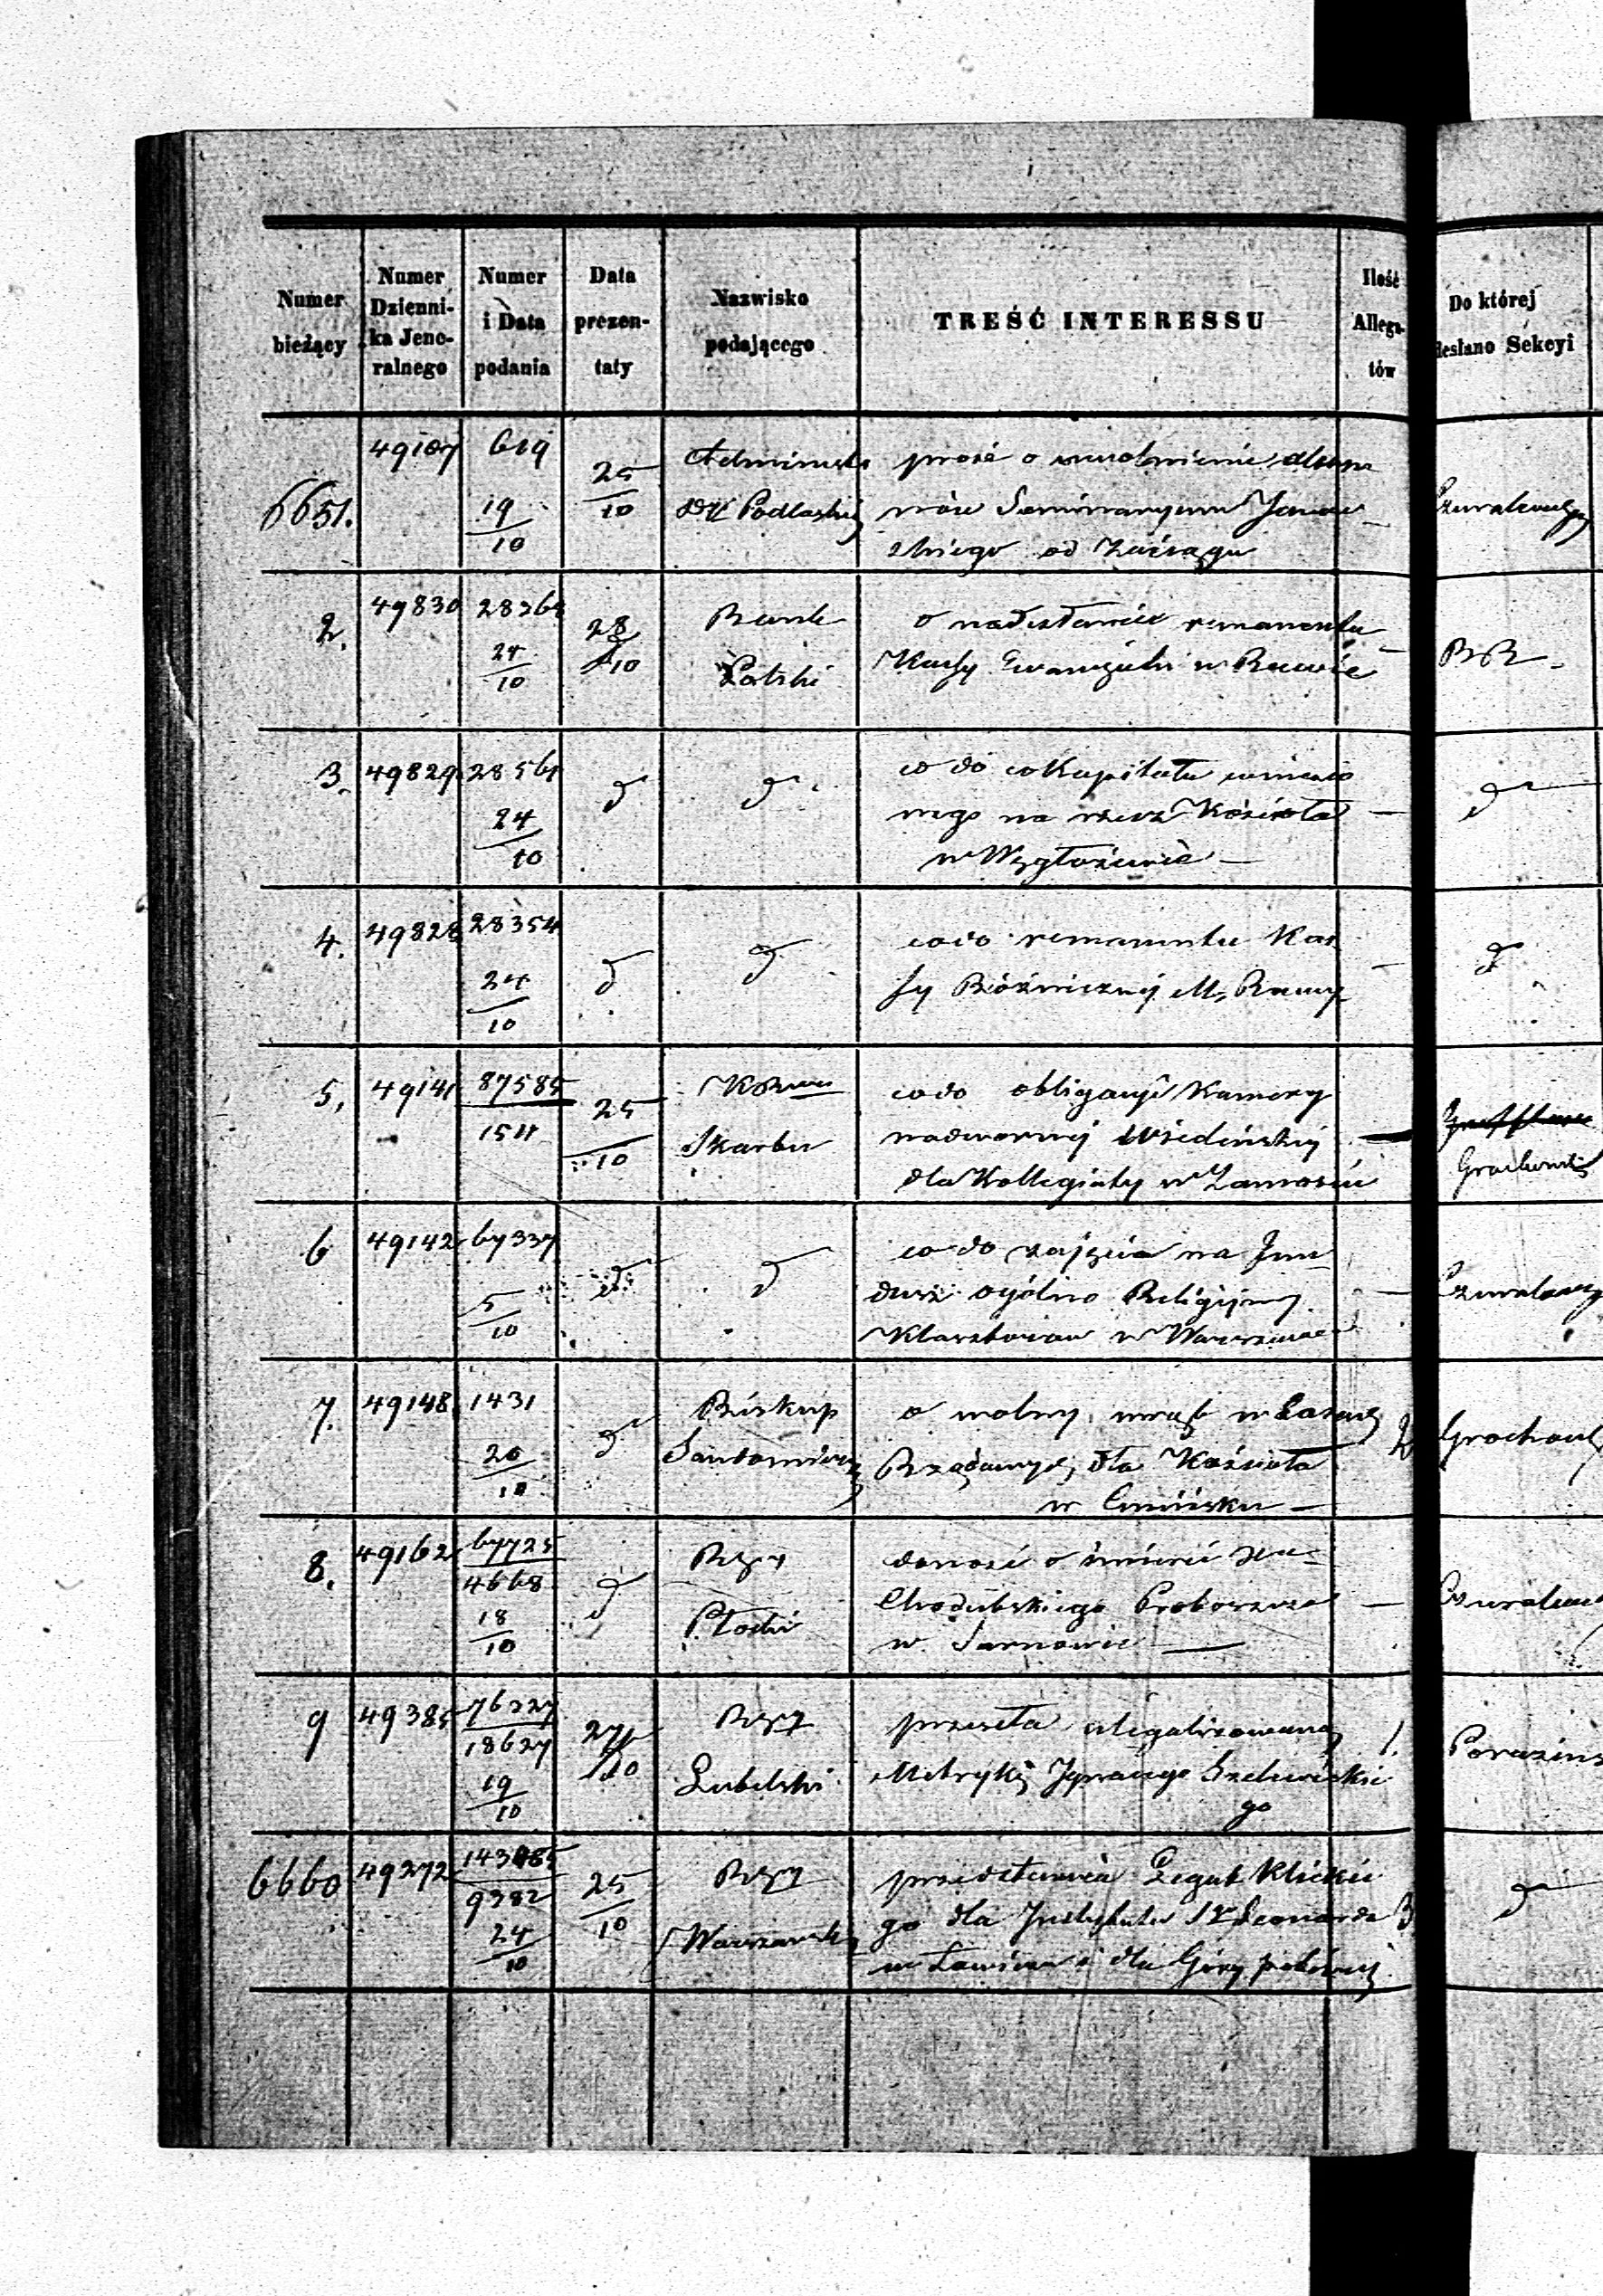 Numer bieżący | Numer Dzienni- ka Jene- ralnego | Numer i Data podania | Data prezen- taty | Nazwisko podającego | TREŚĆ INTERESSU | Ilość Allega- tów | Do której desłano Sekcyi
6651. | 49107 | 619 19/10 | 25/10 | Administr
Dyi Podlaskiej
prosi o uwolnienie alumn
nów Seminaryum Janow
skiego od zaciągu
2. | 49830 | 28365 24/10 | 28/10 | Bank
Polski
o nadesłanie remanentu
Kassy Ewangieli w Rawie | BR
3. | 49829 | 28561 24/10 | d | d
co do Kapitału wniesio
nego na rzecz Kościoła —
w | d
4. | 49828 | 28354 24/10 | d | d
co do remanentu Kas
sy Bóżnicznej M. Rawy | — | d
5, | 49141 | 87585/1511 | 25/10
Skarbu
co do obligacyi Kamery
nadwornej Wiedeńskiej | —
dla Kollegiaty w Zamościu
6 | 49142 | 67337 5/10 | d | d
co do zajęcia na Fun
dusz ogólno Religijny | —
Klasztorów w Warszawie
7. | 49148 | 1431 20/10 | d | Biskup
Sandomierski
o wolny wrąb w Lasach
Rządowych dla Kościoła | 2 | Grochow
w Cmińsku —
8. | 49162 | 67725/4668 18/10 | d
Płocki
donosi o śmierci Xa
Chodubskiego Proboszcza | —
w Sarnowie —
9 | 49385 | 76327/18627 19/10 | 27/10
Lubelski
przesyła zlegalizowaną | 1. | Porazińs
Metrykę Ignacego Szelewickie
go
6660 | 49272 | 143485/9382 24/10 | 25/10
Warszawski
przedstawia Legat Klickie
go dla Instytutu S. Leonarda | 3 | d
w Łowiczu i dla Góry